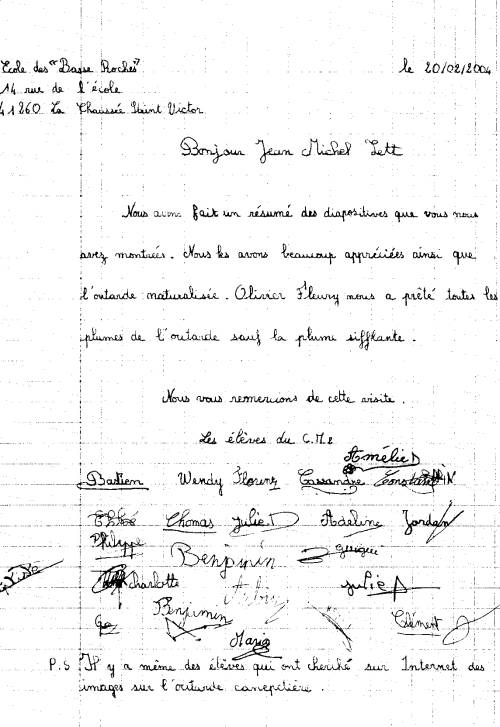 Ecole des "Basse Roches"
le 20/02/2004
14 rue de l'école
41260 La Chaussée Saint Victor
Bonjour Jean Michel Lett
Nous avons fait un résumé des diapositives que vous nous
avez montrées. Nous les avons beaucoup appréciées ainsi que
l'outarde naturalisée. Olivier Fleury nous a prêté toutes les
plumes de l'outarde sauf la plume sifflante.
Nous vous remercions de cette visite.
Les élèves du C.M.2
Amélie D
Bastien Wendy Florent Cassandre
Thomas Julie.D Adeline Jordan
Philippe
Benjamin
Charlotte
Julie
Benjimin
Clément
Marie
P.S Il y a même des élèves qui ont cherché sur Internet des
images sur l'outarde canepetière.